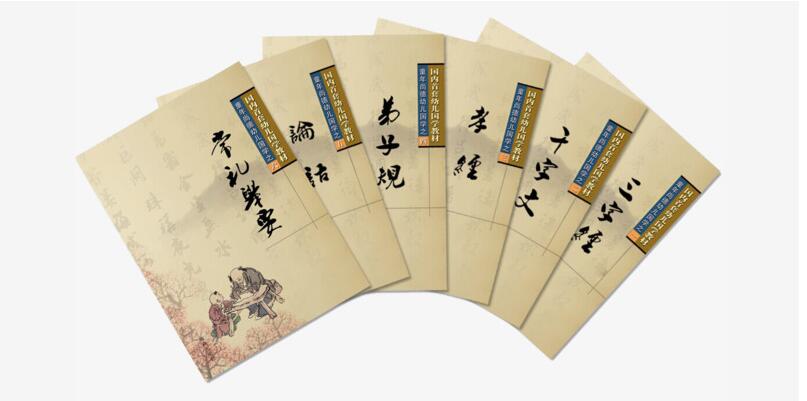 国内首套幼儿国学教材
童年尚德幼儿国学之
常礼舉要
国内首套幼儿国学教材
童年尚德幼儿国学之
論語
国内首套幼儿国学教材
童年尚德幼儿国学之
弟子規
国内首套幼儿国学教材
童年尚德幼儿国学之
孝經
国内首套幼儿国学教材
童年尚德幼儿国学之
千字文
国内首套幼儿国学教材
童年尚德幼儿国学之
三字經